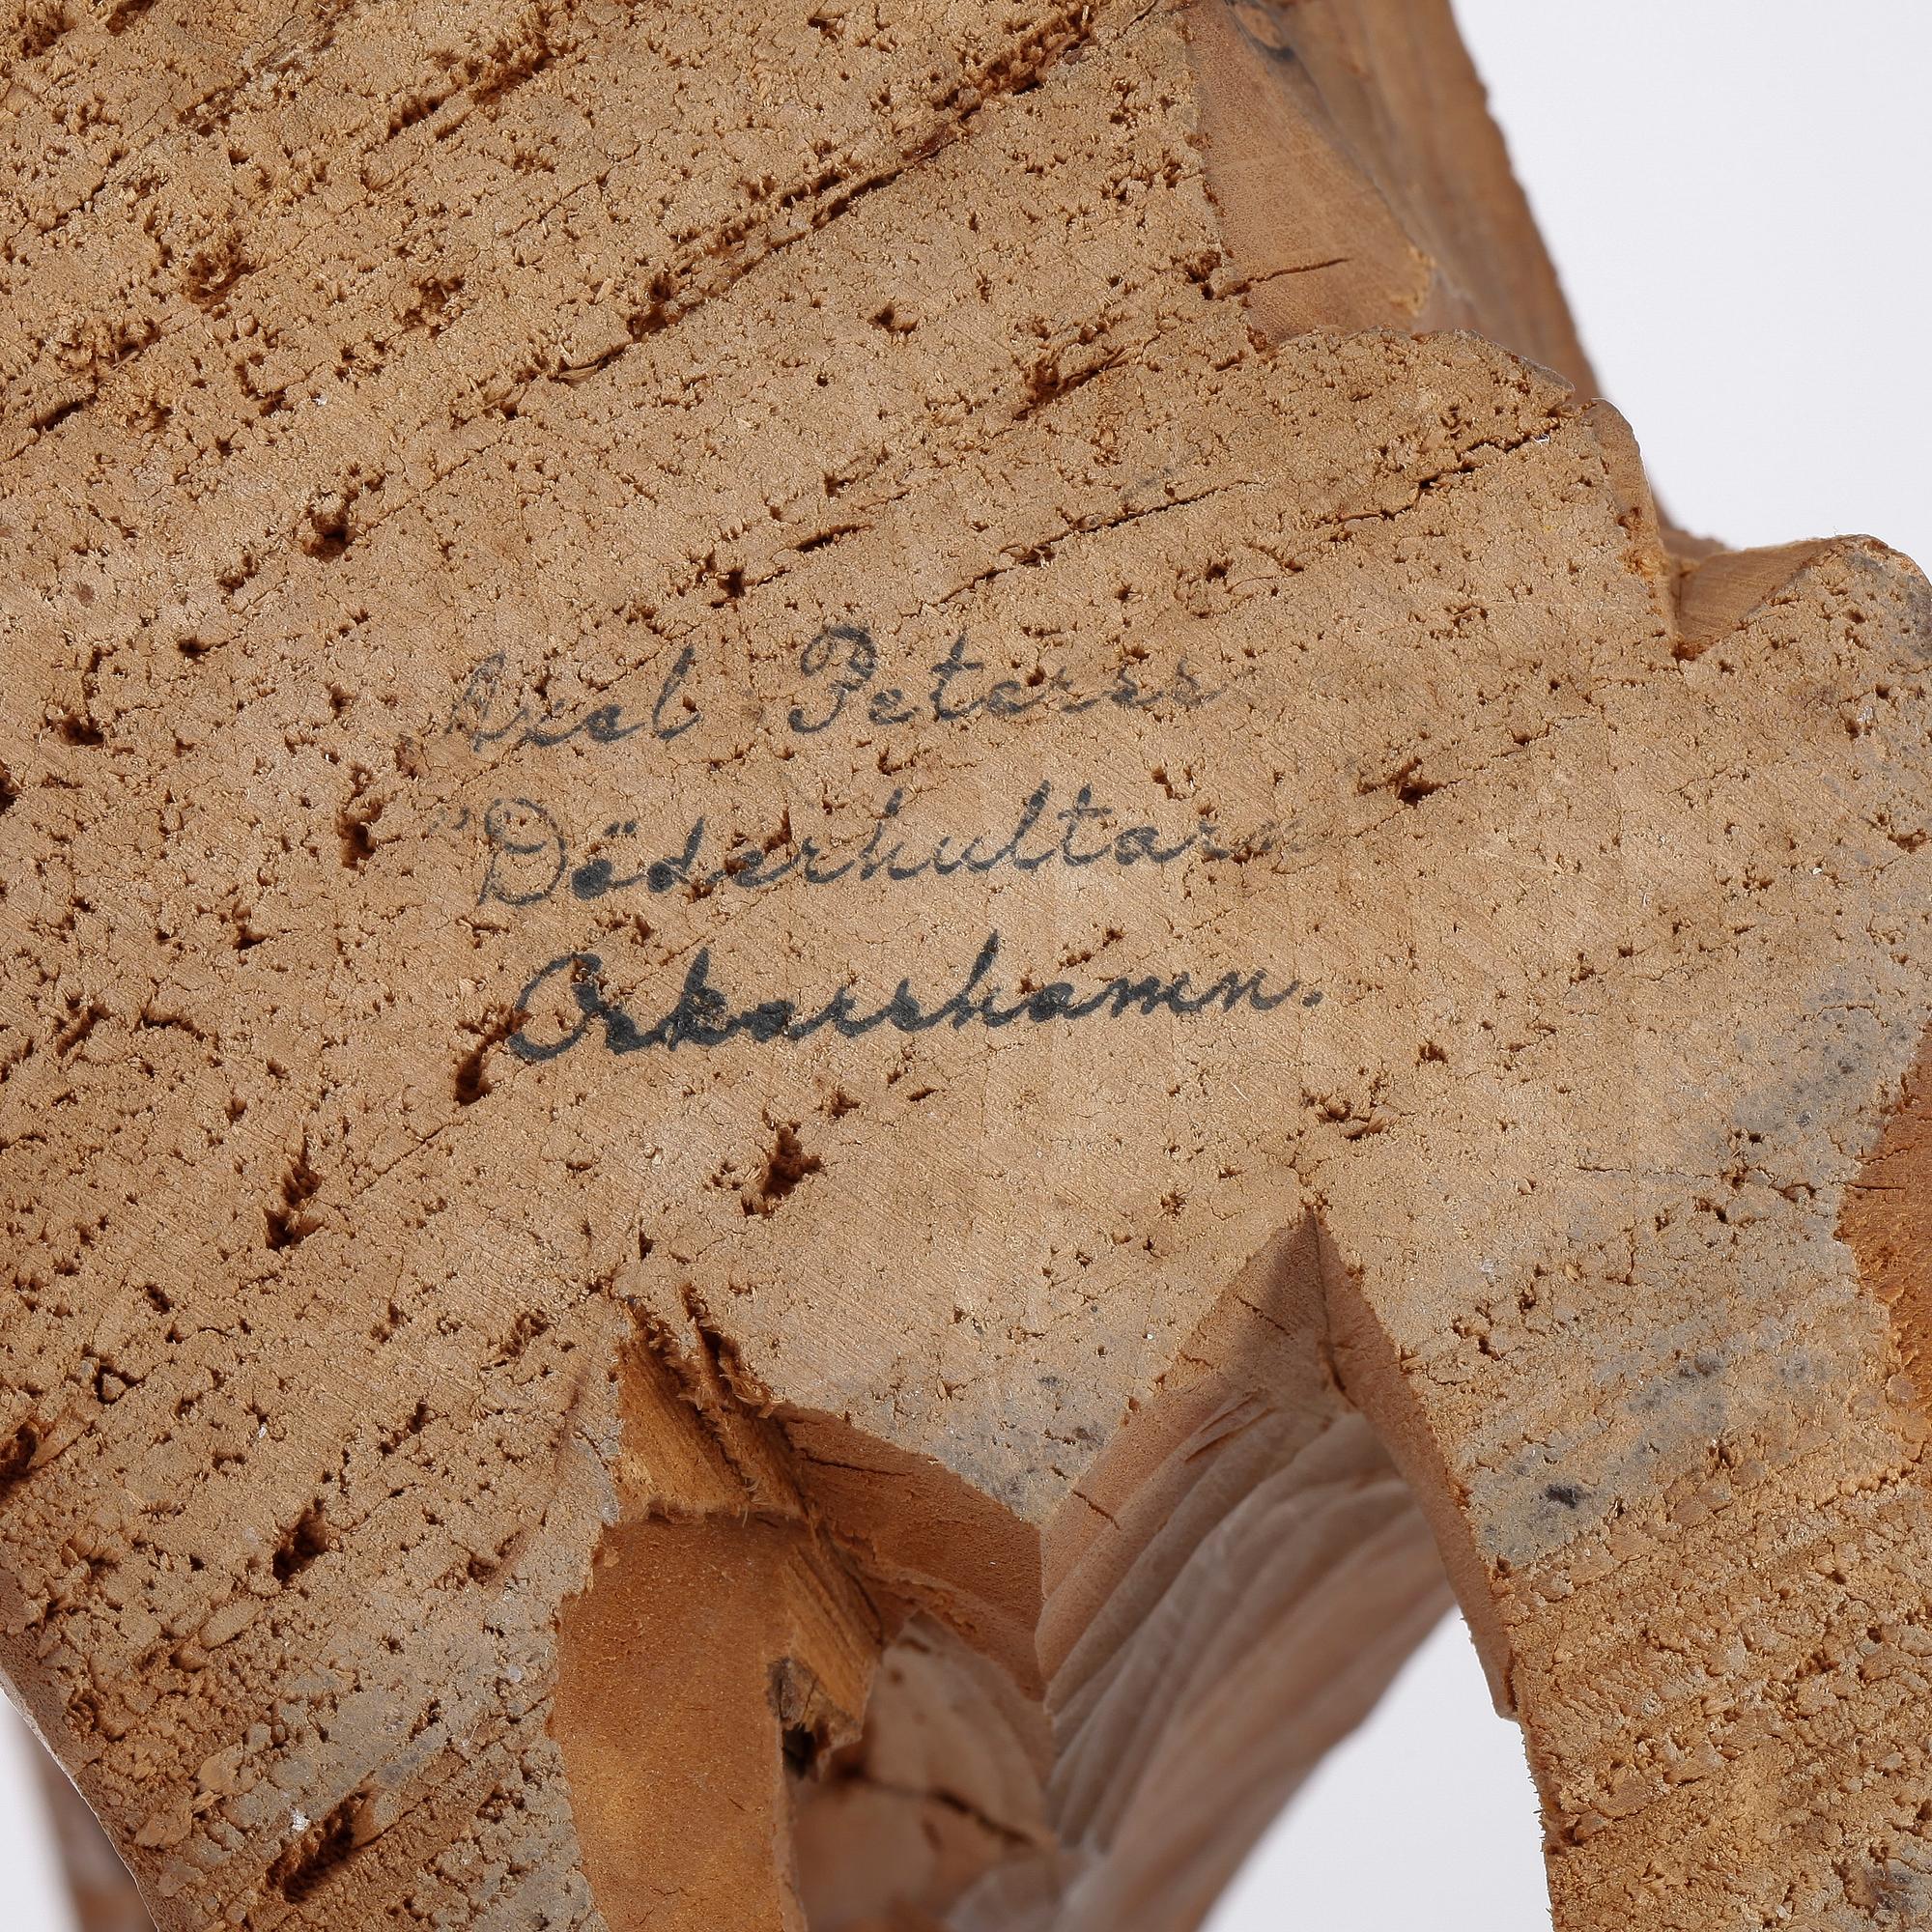 Axel Peterss
"Döderhultarn
Oskarshamn.